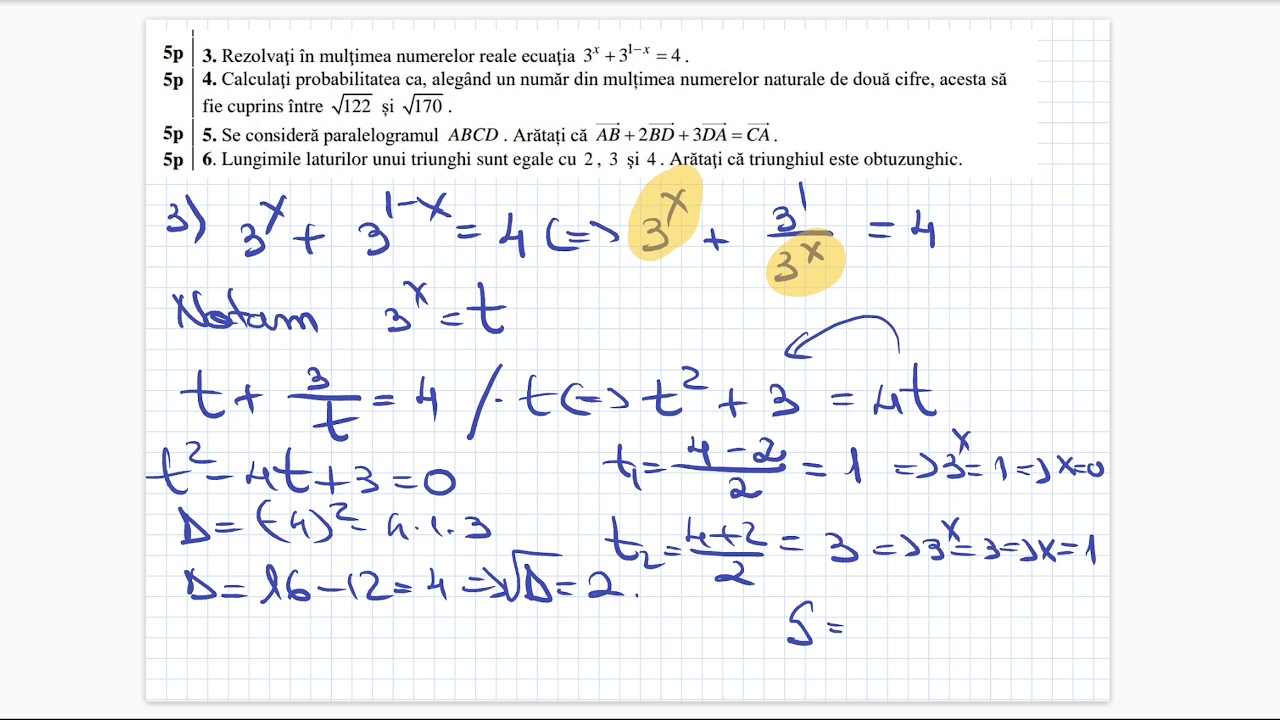 5p 3. Rezolvați în mulțimea numerelor reale ecuația 3^x + 3^{1-x} = 4 .
5p 4. Calculați probabilitatea ca, alegând un număr din mulțimea numerelor naturale de două cifre, acesta să
fie cuprins între √122 și √170 .
5p 5. Se consideră paralelogramul ABCD . Arătați că \overrightarrow{AB} + 2\overrightarrow{BD} + 3\overrightarrow{DA} = \overrightarrow{CA} .
5p 6. Lungimile laturilor unui triunghi sunt egale cu 2 , 3 și 4 . Arătați că triunghiul este obtuzunghic.
3) 3^x + 3^{1-x} = 4 (=> 3^x + \frac{3^1}{3^x} = 4
Notam 3^x = t
t + \frac{3}{t} = 4 / · t (=> t^2 + 3 = 4t
t^2 - 4t + 3 = 0
Δ = (-4)^2 - 4·1·3
Δ = 16 - 12 = 4 => √Δ = 2.
t_1 = \frac{4-2}{2} = 1 => 3^x = 1 => x = 0
t_2 = \frac{4+2}{2} = 3 => 3^x = 3 => x = 1
S =